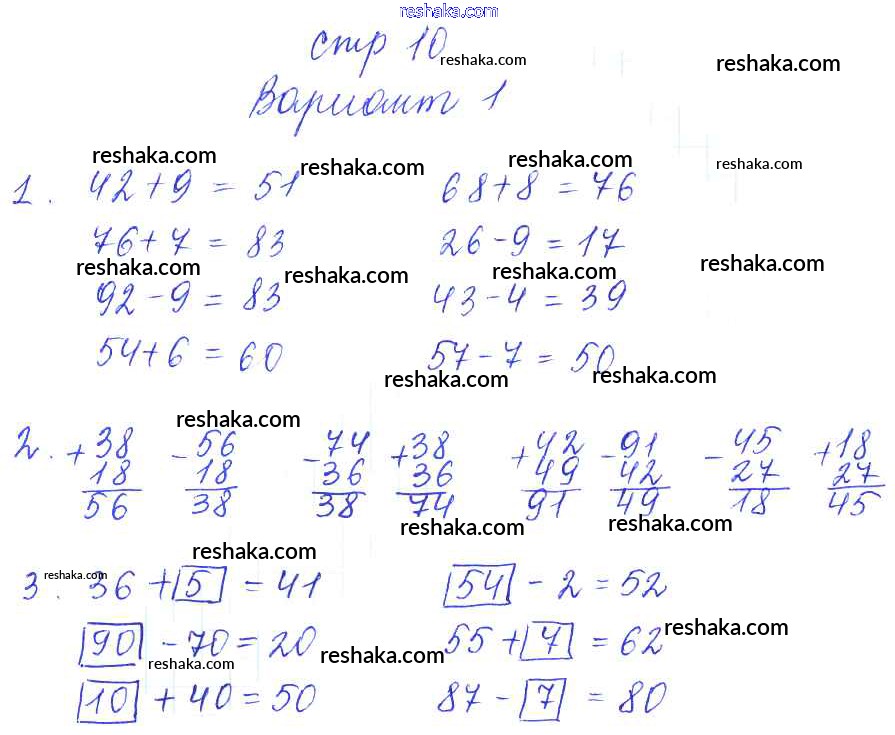 reshaka.com
стр 10
reshaka.com reshaka.com
Вариант 1
reshaka.com reshaka.com reshaka.com reshaka.com
1. 42+9 = 51 68+8 = 76
76+7 = 83 26-9 = 17
reshaka.com reshaka.com reshaka.com reshaka.com
92-9 = 83 43-4 = 39
54+6 = 60 57-7 = 50
reshaka.com reshaka.com
reshaka.com
2. +38 -56 -74 +38 +42 -91 -45 +18
18 18 36 36 49 42 27 27
56 38 38 74 91 49 18 45
reshaka.com reshaka.com
reshaka.com
reshaka.com
3. 36 + 5 = 41 54 - 2 = 52
90 - 70 = 20 55 + 7 = 62 reshaka.com
reshaka.com reshaka.com
10 + 40 = 50 87 - 7 = 80